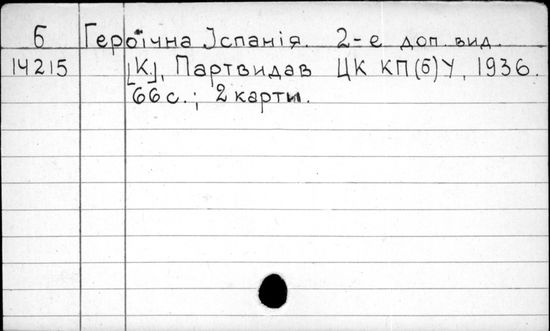 Б Героїчна Іспанія. 2-е доп. вид.
14215 [К.], Партвидав ЦК КП(б)У, 1936.
66 с.; 2 карти.